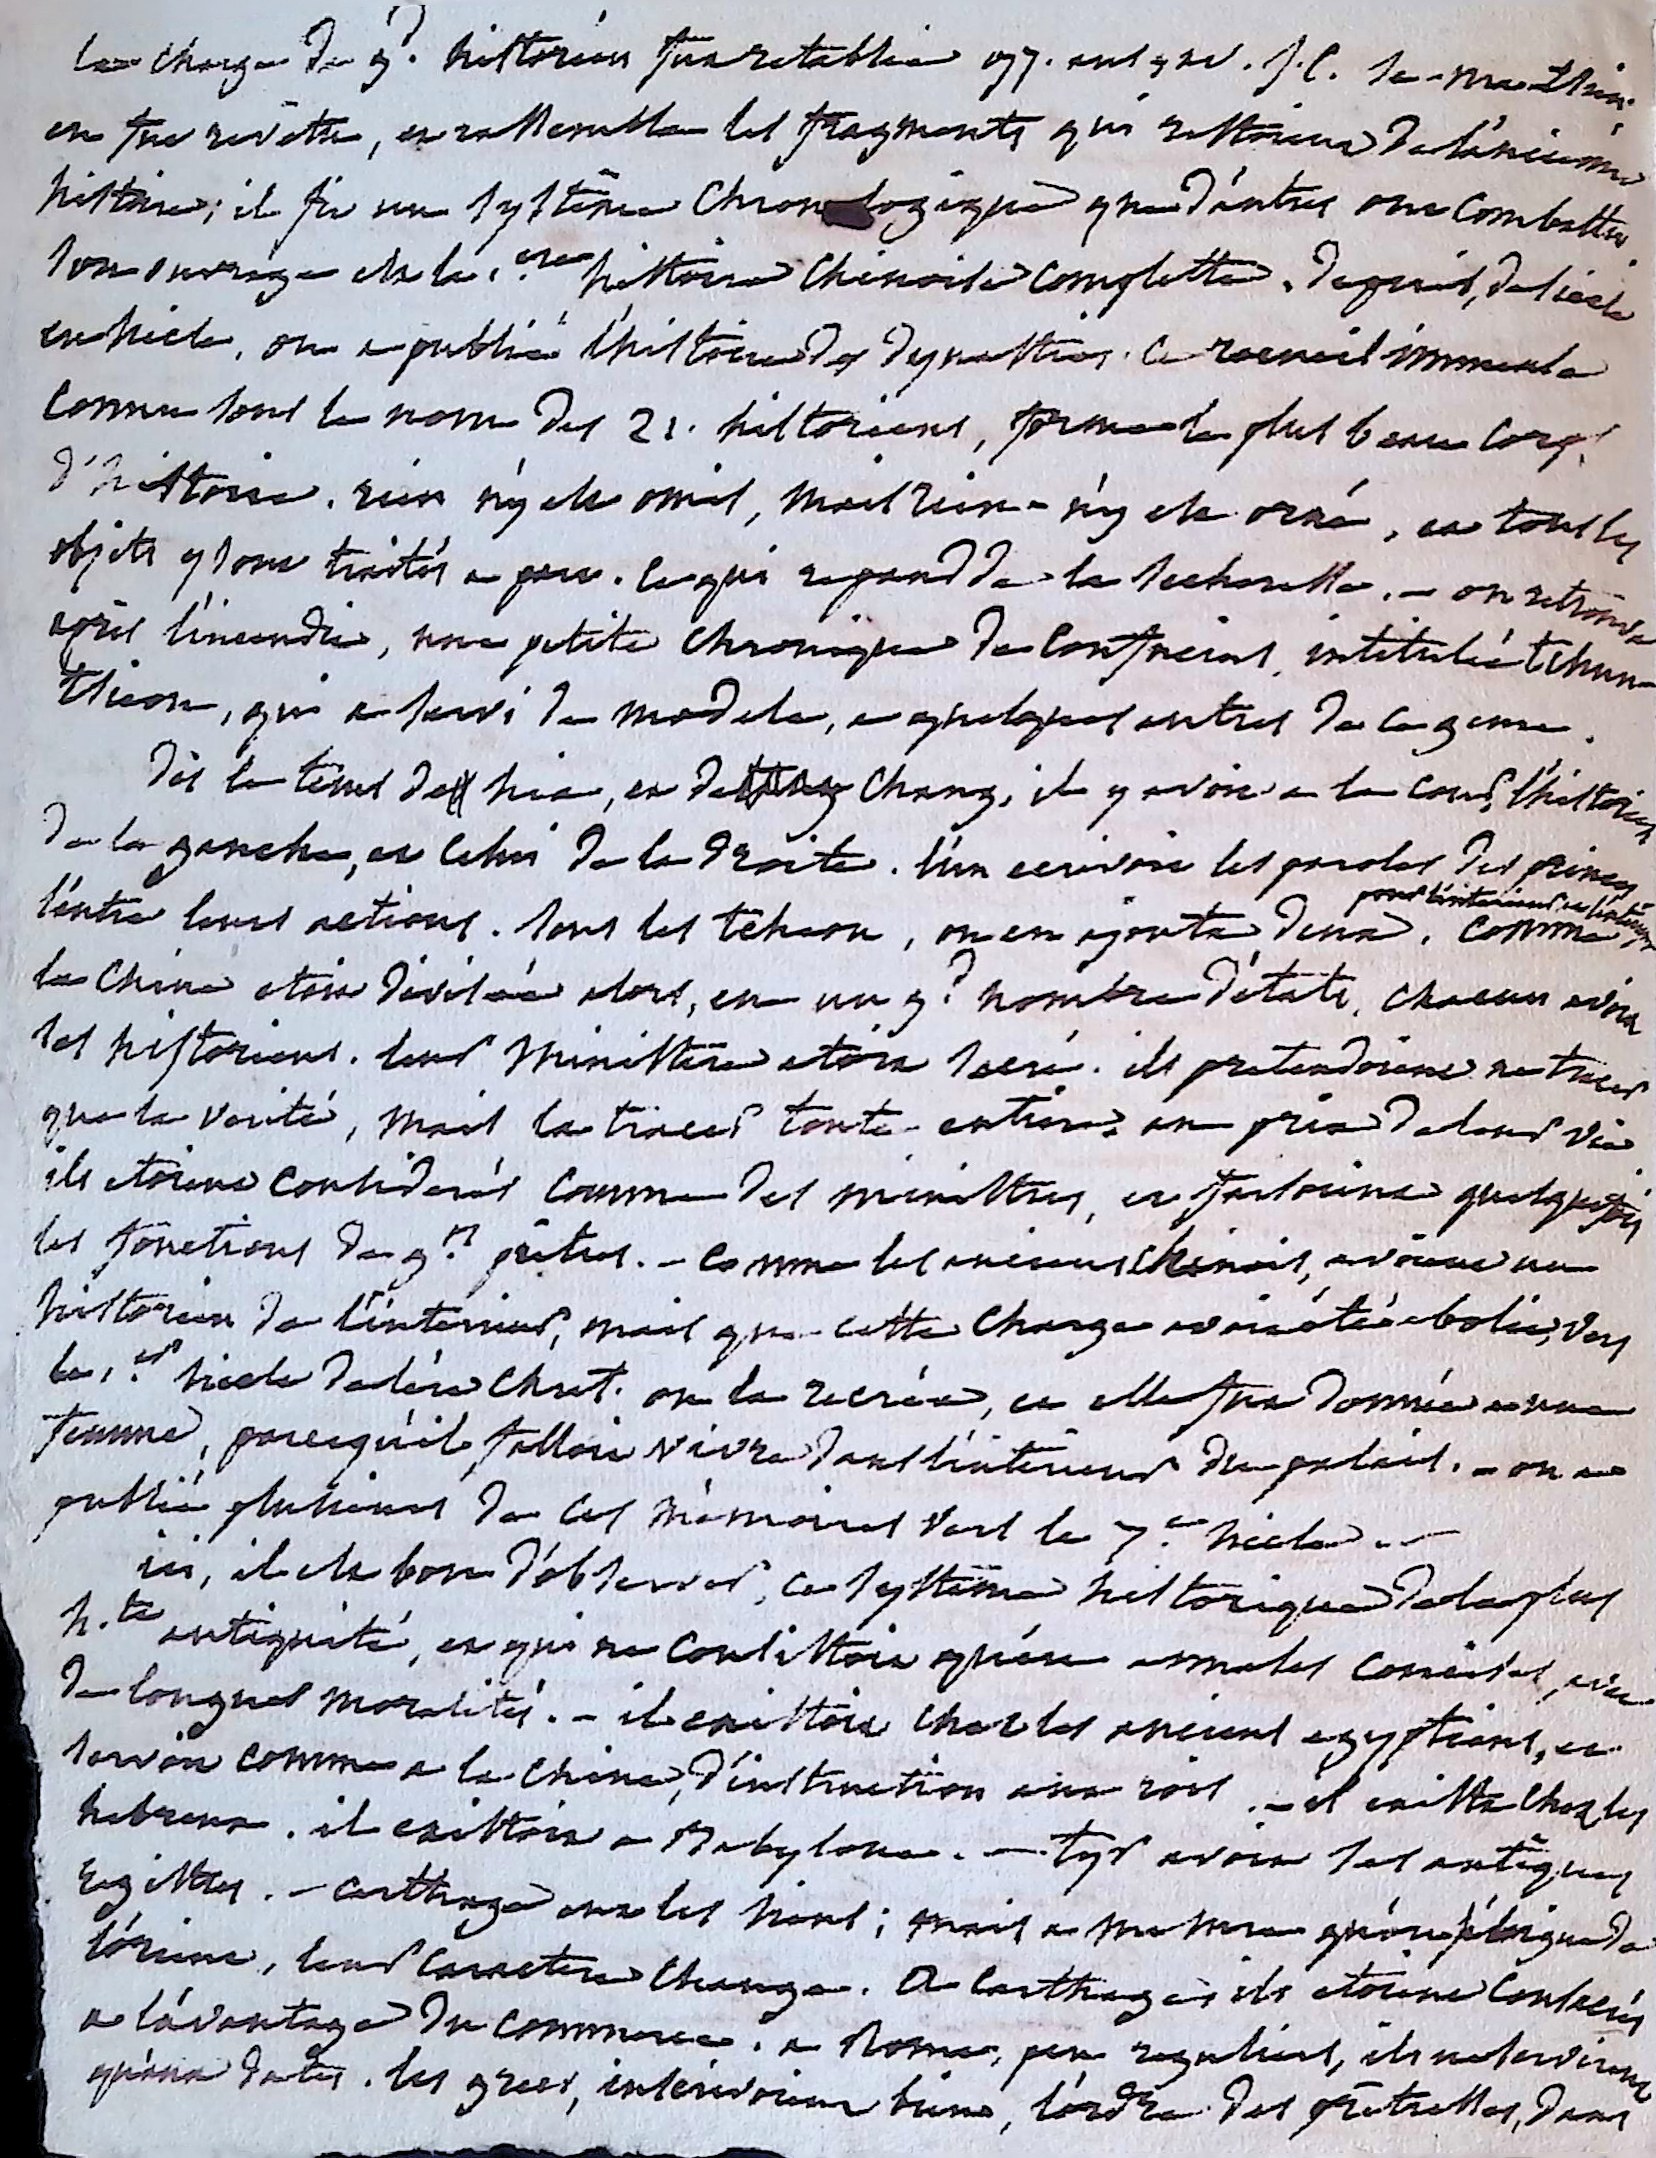 la charge de g.d historien fut retablie 97. ans av. J.C. Se-ma-tsien
en fut revêtu, et rassembla les fragments qui restoient de l'ancienne
histoire; il fit un systême chronologique que d'autres ont combattu.
son ouvrage est la 1.ere histoire chinoise complette. depuis, de siecle
en siecle, on a publié l'histoire des dynasties. ce recueil immense
connu sous le nom des 21. historiens, forme le plus beau corps
d'histoire. rien n'y est omis, mais rien n'y est orné, et tous les
objets y sont traités a part. ce qui repand de la secheresse. - on retrouva
après l'incendie, une petite chronique de Confucius, intitulée tchun-
tsieou, qui a servi de modele, a quelques autres de ce genre.
dès le tems des hia, et des chang, il y avoit a la cour, l'historien
de la gauche, et celui de la droite. l'un ecrivoit les paroles des princes
l'autre leurs actions. sous les tcheou, on en ajouta deux, pour l'interieur et l'exterieur. comme
la chine etoit divisée alors, en un g.d nombre d'états, chacun avoit
ses historiens. leur ministère etoit sacré. ils pretendoient ne tracer
que la verité, mais la tracer toute entiere, au prix de leur vie
ils etoient considerés comme des ministres, et faisoient quelquefois
les fonctions de g.ds prêtres. - comme les anciens chinois, avoient un
historien de l'interieur, mais que cette charge avoit été abolie, vers
le 1.er siecle de l'ère chret. on la recréa, et elle fut donnée a une
femme, parcequ'il falloit vivre dans l'intérieur du palais. - on a
publié plusieurs de ces mémoires vers le 7.e siecle. -
ici, il est bon d'observer, ce systême historique de la plus
h.te antiquité, et qui ne consistoit qu'en annales concises, avec
de longues moralités. - il existoit chez les anciens egyptiens, et
servoit comme a la chine, d'instruction aux rois. - il exista chez les
hebreux. il existoit a Babylone. - Tyr avoit ses antiques
registres. - carthage eut les siens; mais a mesure qu'on s'éloigne de
l'orient, leur caractere change. A carthage ils etoient consacrés
a l'avantage du commerce. a Rome, peu reguliers, ils ne servirent
qu'aux dates. les grecs, inscrivoient bien, l'ordre des prêtresses, dans